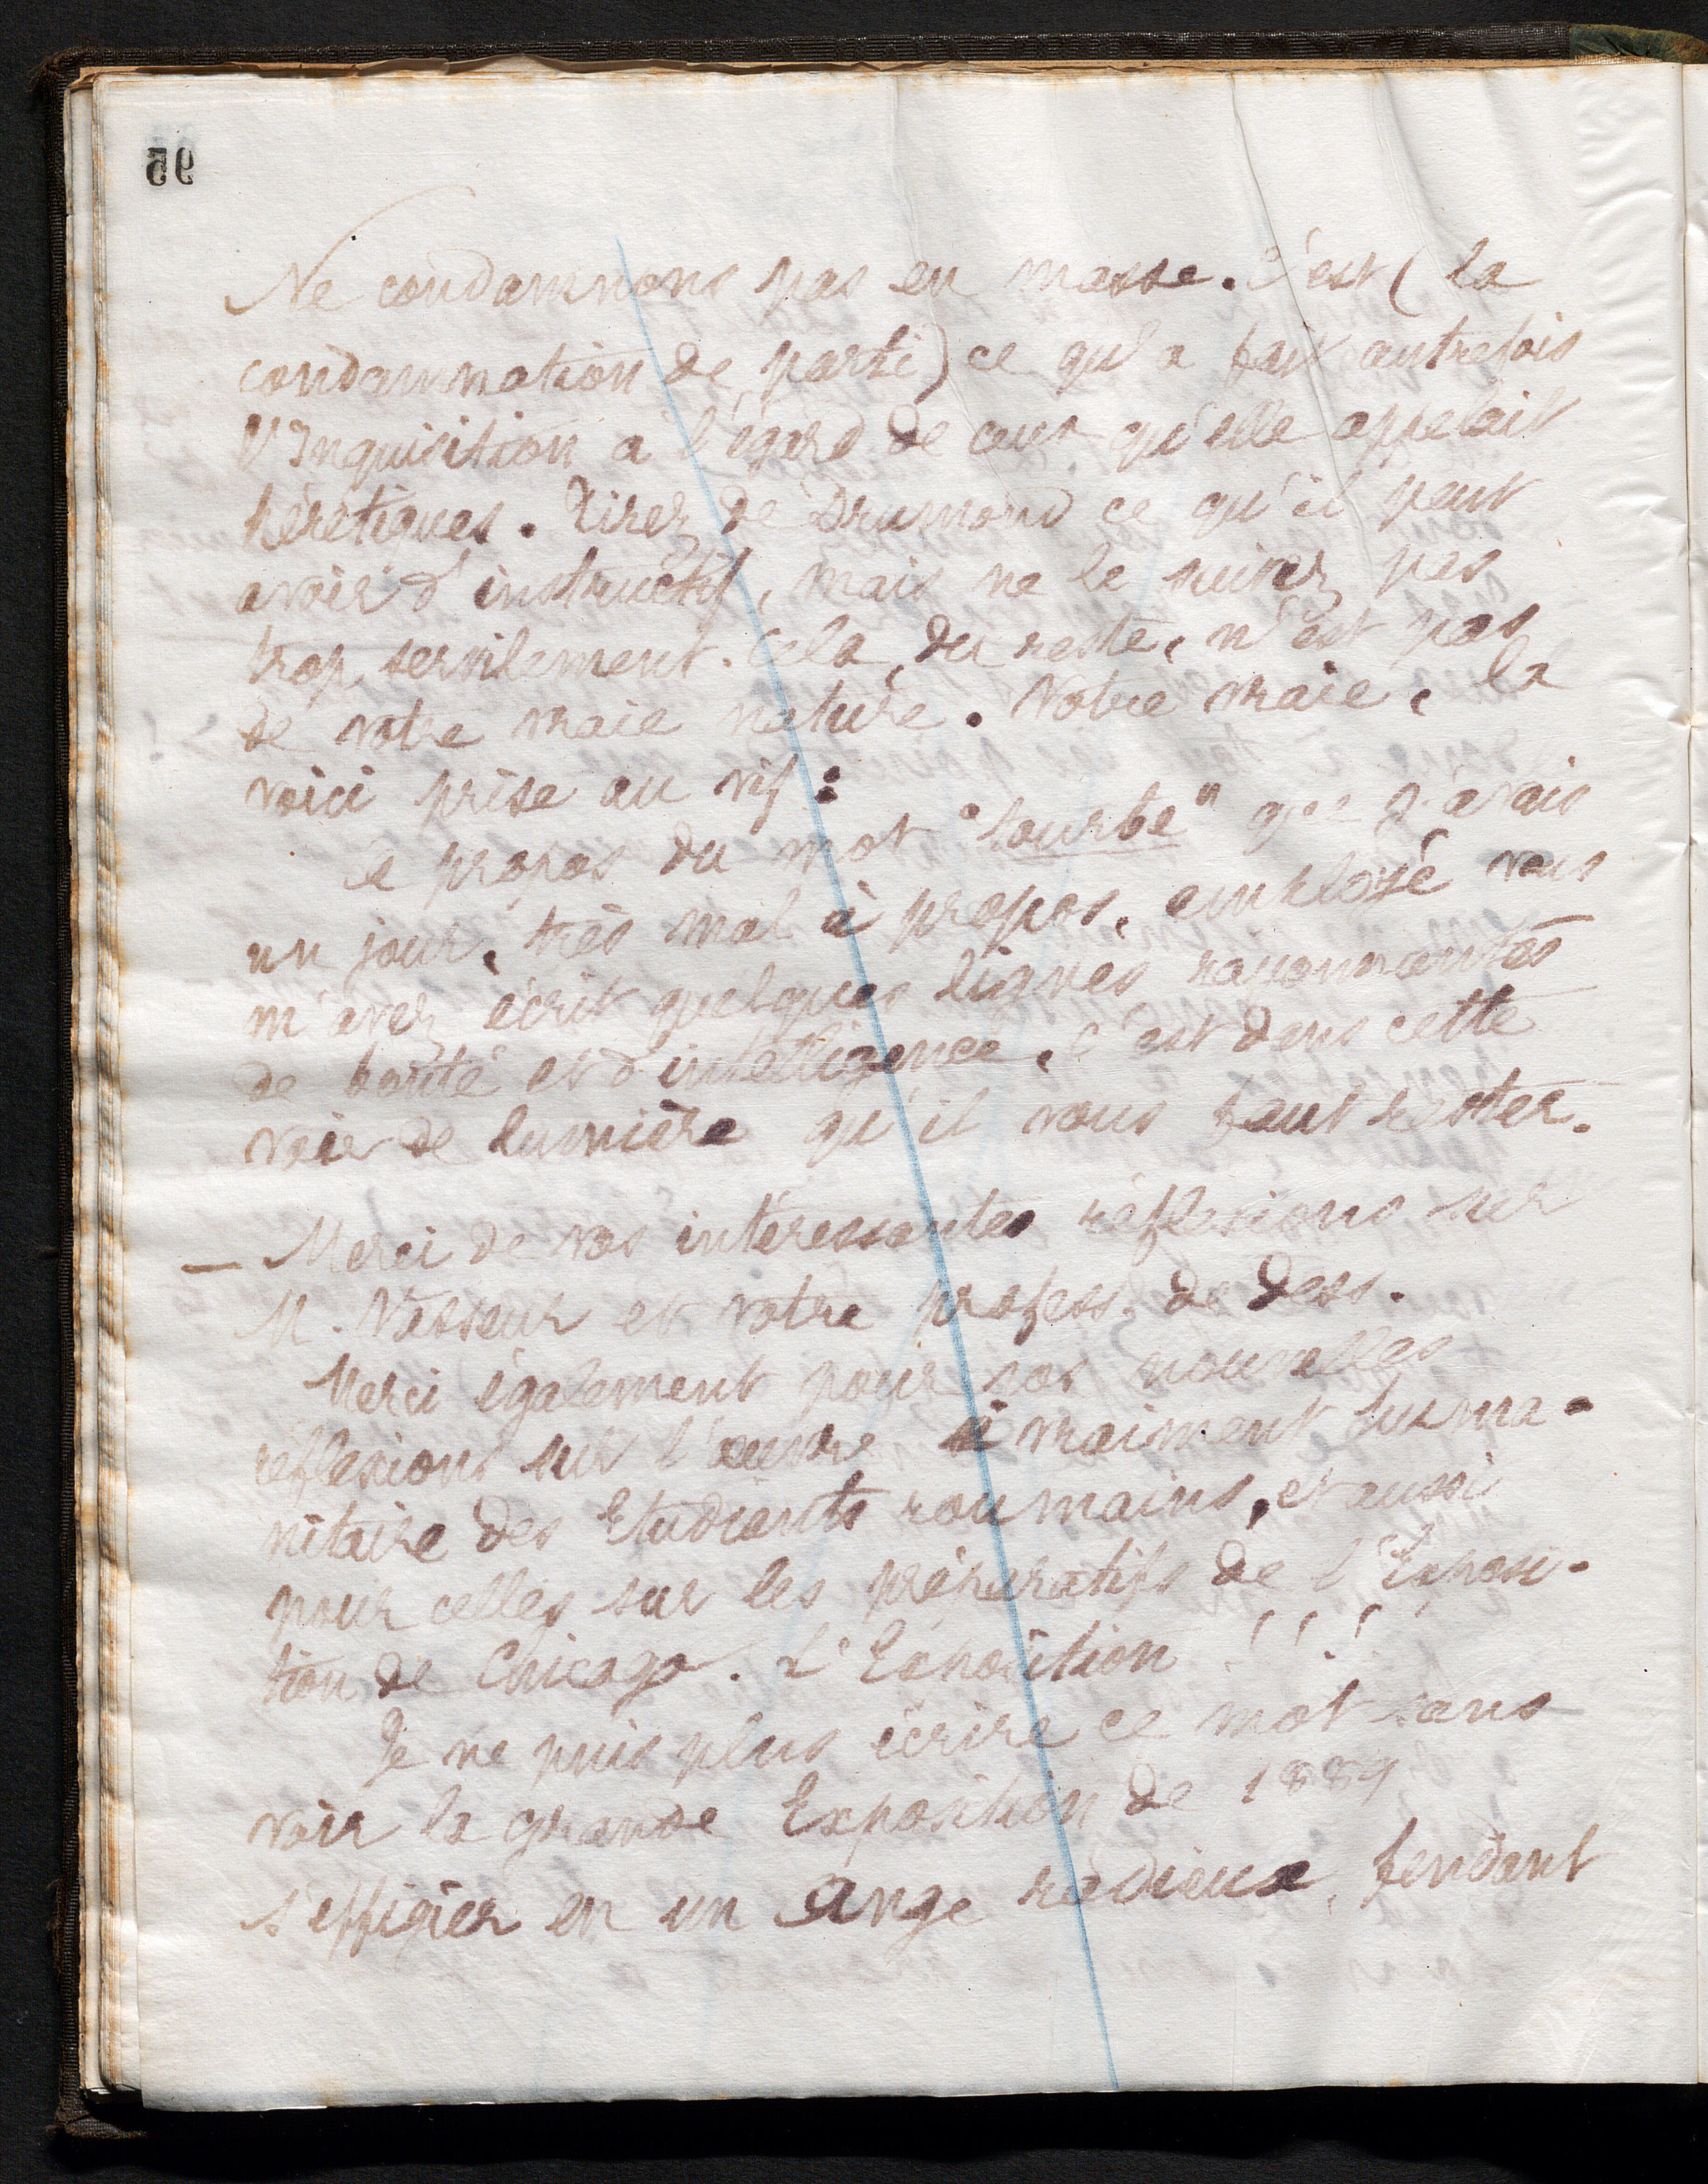 95
Ne condamnons pas en masse. C'est (la
condamnation de parti) ce qu'a fait autrefois
l'Inquisition à l'égard de ceux qu'elle appelait
hérétiques. Tirez de Drumond ce qu'il peut
avoir d'instructif, mais ne le suivez pas
trop servilement. Cela, du reste, n'est pas
de votre vraie nature. Votre vraie, la
voici prise au vif :
A propos du mot "tourbe" que j'avais
un jour, très mal à propos, employé vous
m'avez écrit quelques lignes rayonnantes
de bonté et d'intelligence. C'est dans cette
voie de lumière qu'il vous faut rester.
— Merci de vos intéressantes réflexions sur
M. Vasseur et votre profess. de dess.
Merci également pour vos nouvelles
réflexions sur l'œuvre si vraiment huma-
nitaire des Etudiants roumains, et aussi
pour celles sur les préparatifs de l'Exposi-
tion de Chicago. L'Exposition ! ! !
Je ne puis plus écrire ce mot sans
voir la grande Exposition de 1889
s'effigier en un Ange radieux, fendant